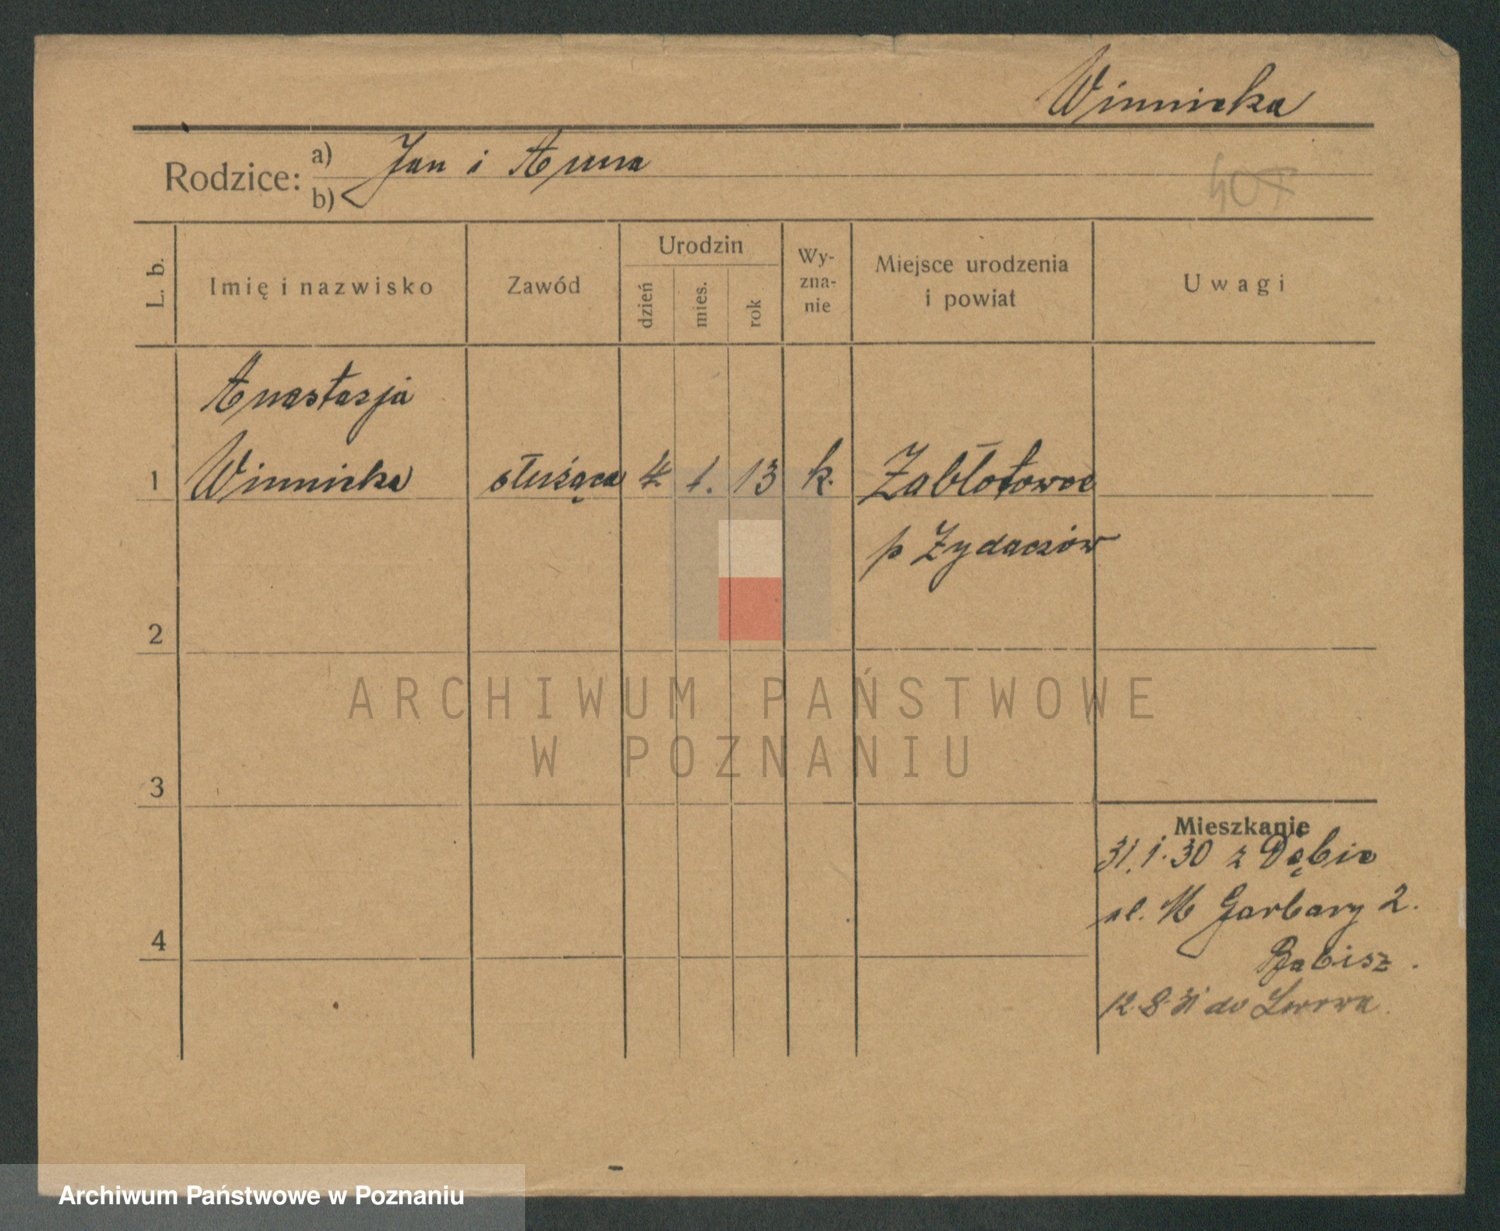 Winnicka
Rodzice: a) Jan i Anna
b)
407
L. b. Imię i nazwisko Zawód Urodzin dzień mies. rok Wy-zna-nie Miejsce urodzenia i powiat Uwagi
Anastazja
1 Winnicka służąca 4. 1. 13 k. Zabłotowce
p Zydaczów
2
ARCHIWUM PAŃSTWOWE
W POZNANIU
3
Mieszkanie
31.1.30 z Dębic
4
ul. M Garbary 2.
Bąbisz.
12.8.31 do Lwowa.
Archiwum Państwowe w Poznaniu